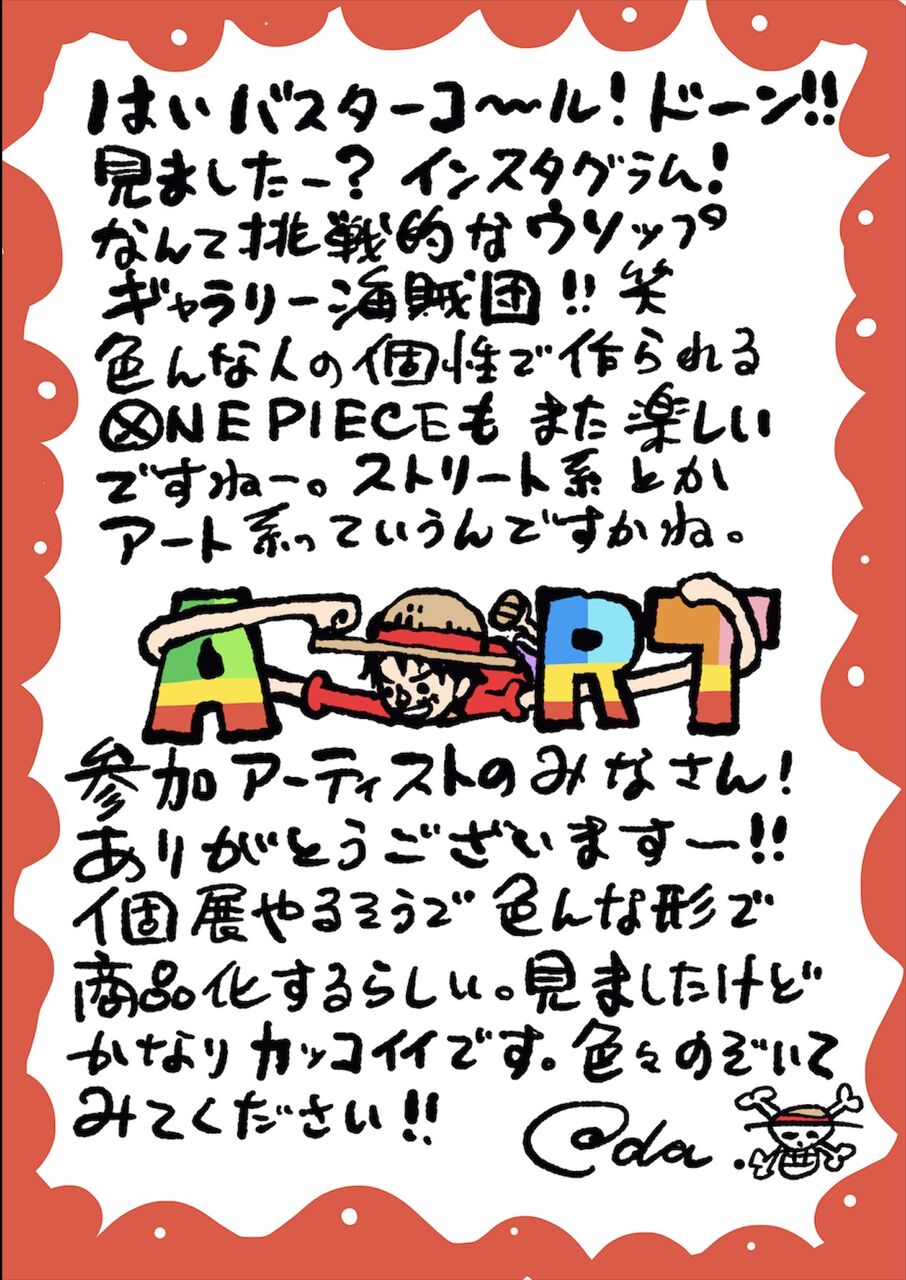 はい バスターコ〜〜ル！ドーン!!
見ましたー？インスタグラム！
なんて挑戦的なウソップ
ギャラリー海賊団!! 笑
色んな人の個性で作られる
ONE PIECEもまた楽しい
ですねー。ストリート系とか
アート系っていうんですかね。
ART
参加アーティストのみなさん！
ありがとうございますー!!
個展やるそうで色んな形で
商品化するらしい。見ましたけど
かなりカッコイイです。色々のぞいて
みてください!!
@da.